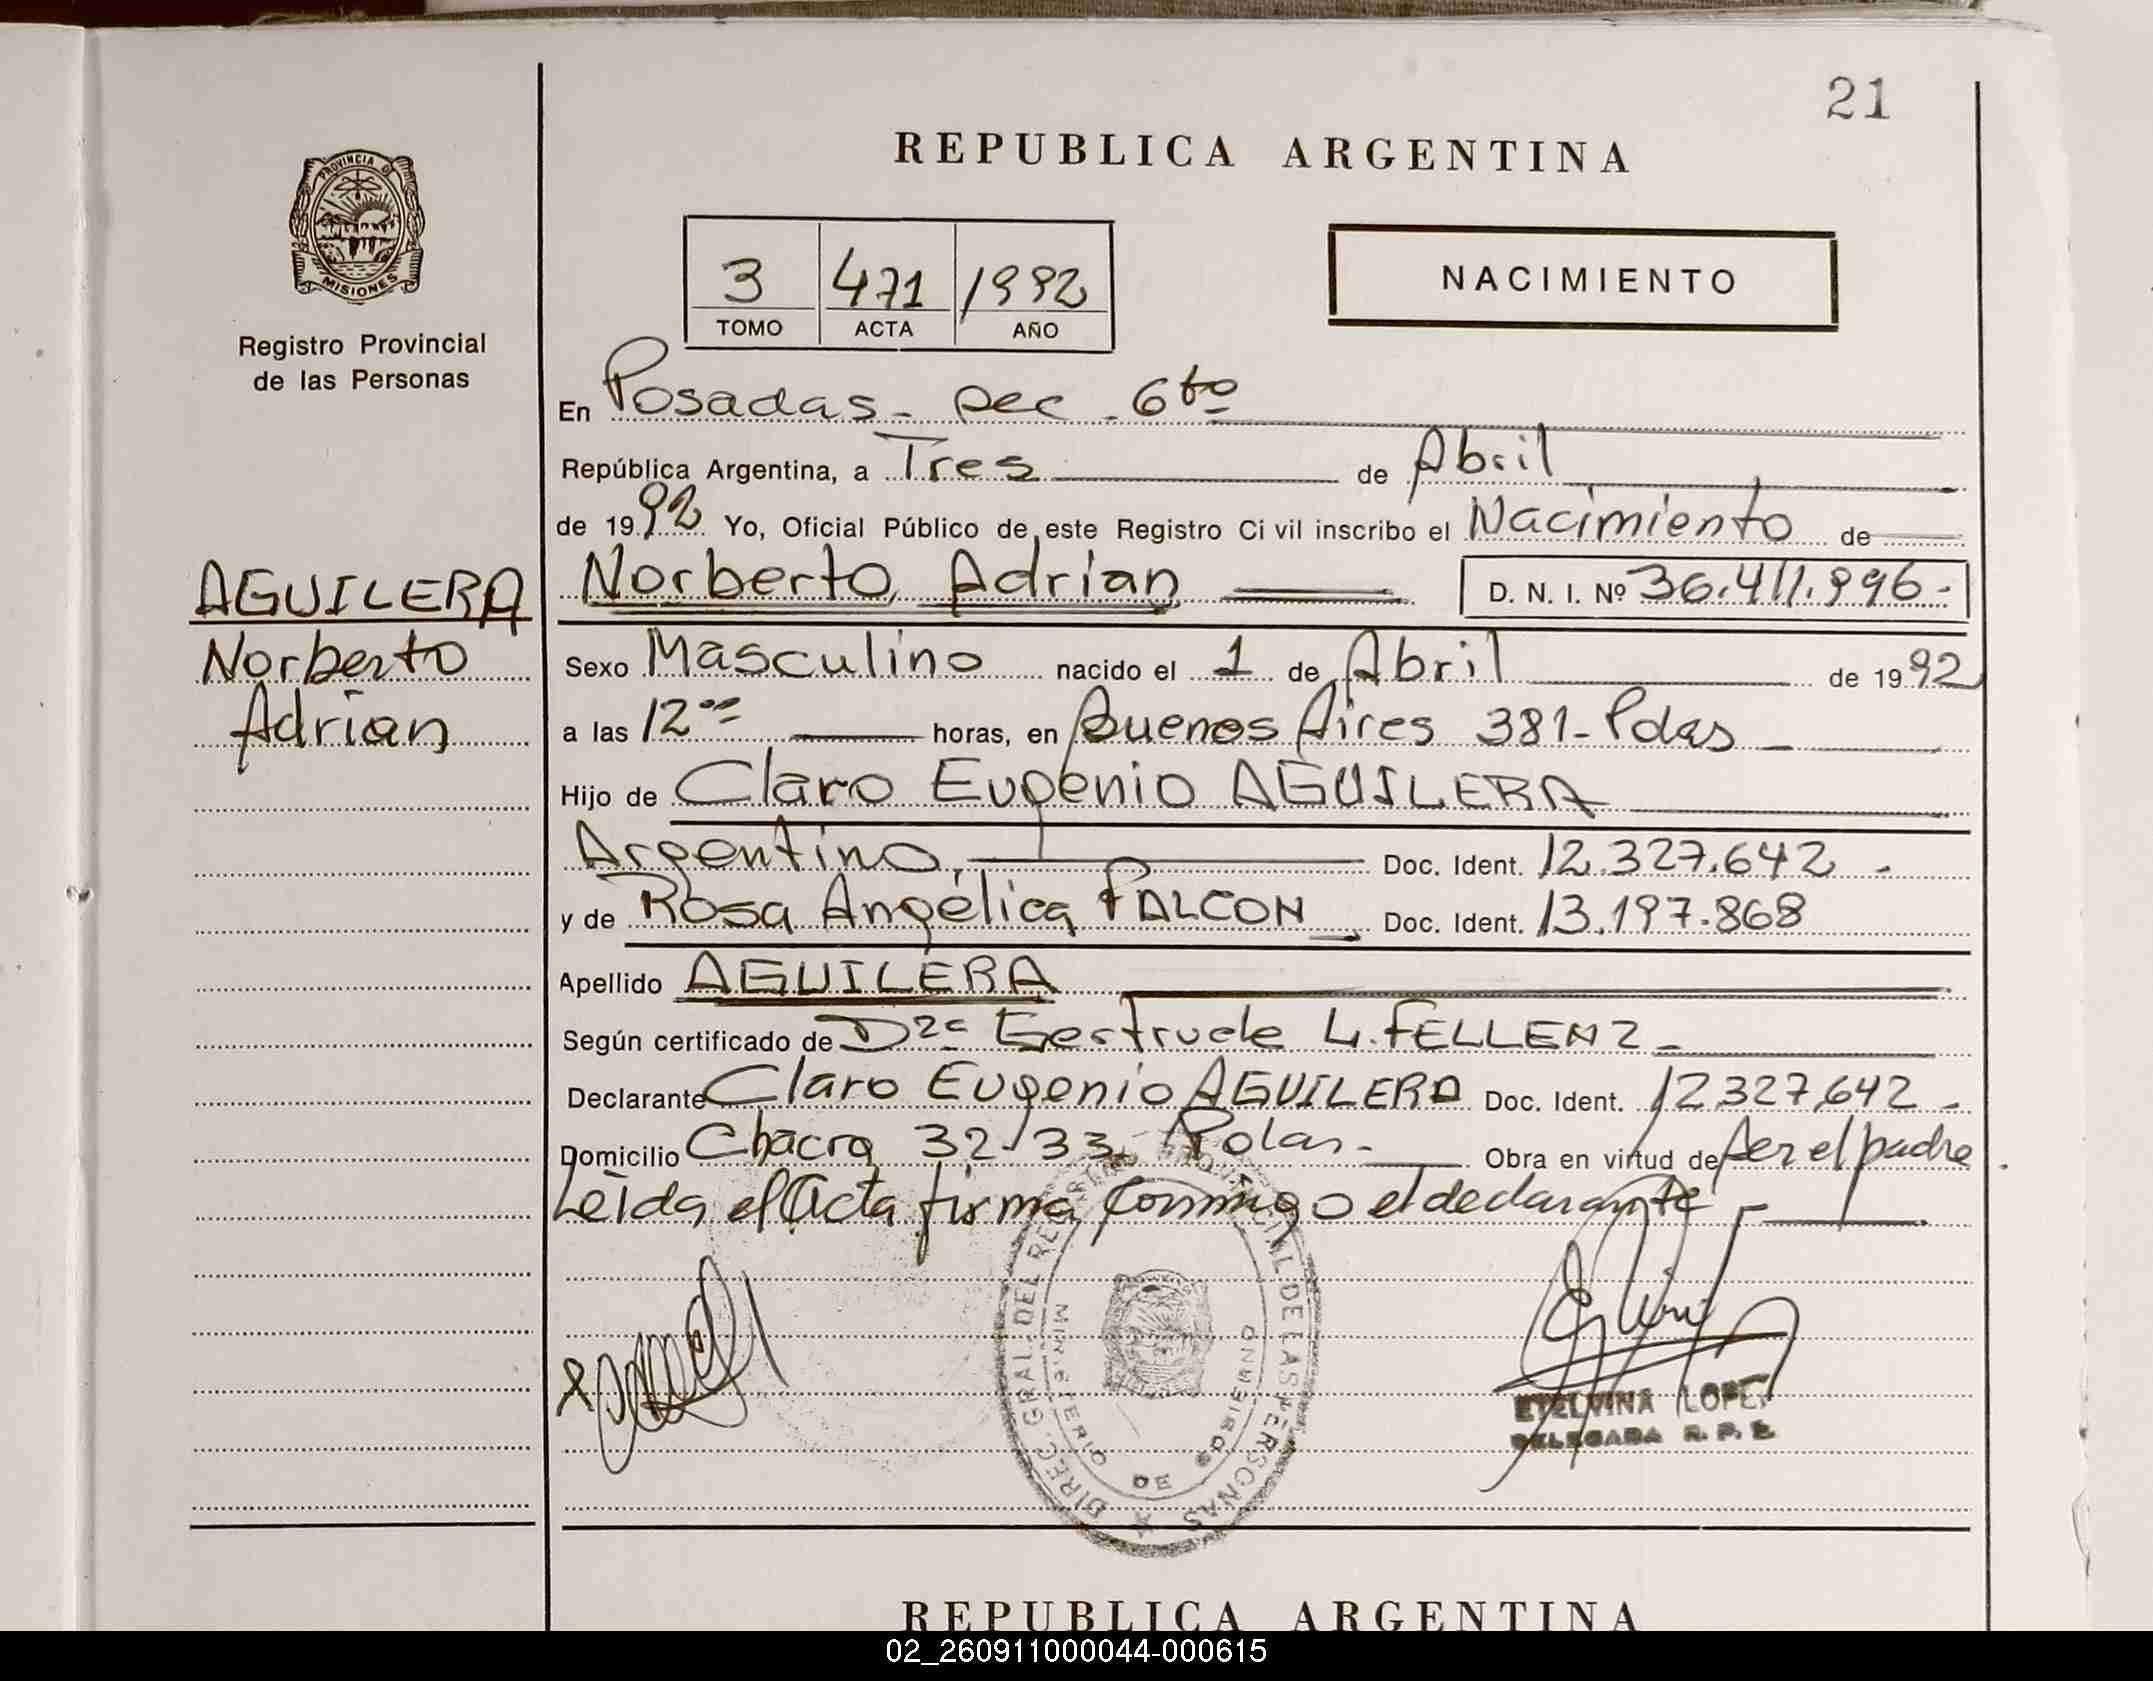 21
REPUBLICA ARGENTINA
PROVINCIA DE
MISIONES
Registro Provincial
de las Personas
3 471 1992
TOMO ACTA AÑO
NACIMIENTO
En Posadas - Sec - 6to
República Argentina, a Tres de Abril
de 1992 Yo, Oficial Público de este Registro Civil inscribo el Nacimiento de
AGUILERA
Norberto
Adrian
Norberto, Adrian D. N. I. Nº 36.411.996.-
Sexo Masculino nacido el 1 de Abril de 1992
a las 12 00 horas, en Buenos Aires 381 - Pdas -
Hijo de Claro Eugenio AGUILERA
Argentino, Doc. Ident. 12.327.642 -
y de Rosa Angélica FALCON Doc. Ident. 13.197.868
Apellido AGUILERA
Según certificado de Dra Gertrude L. FELLENZ -
Declarante Claro Eugenio AGUILERA Doc. Ident. 12327642 -
Domicilio Chacra 32-33 - Obra en virtud de ser el padre.
Leida el Acta firma conmigo el declarante -
DIREC. GRAL. DEL REGISTRO PROVINCIAL DE LAS PERSONAS
MINISTERIO DE GOBIERNO
ETELVINA LOPEZ
DELEGADA R. P. P.
REPUBLICA ARGENTINA
02_260911000044-000615